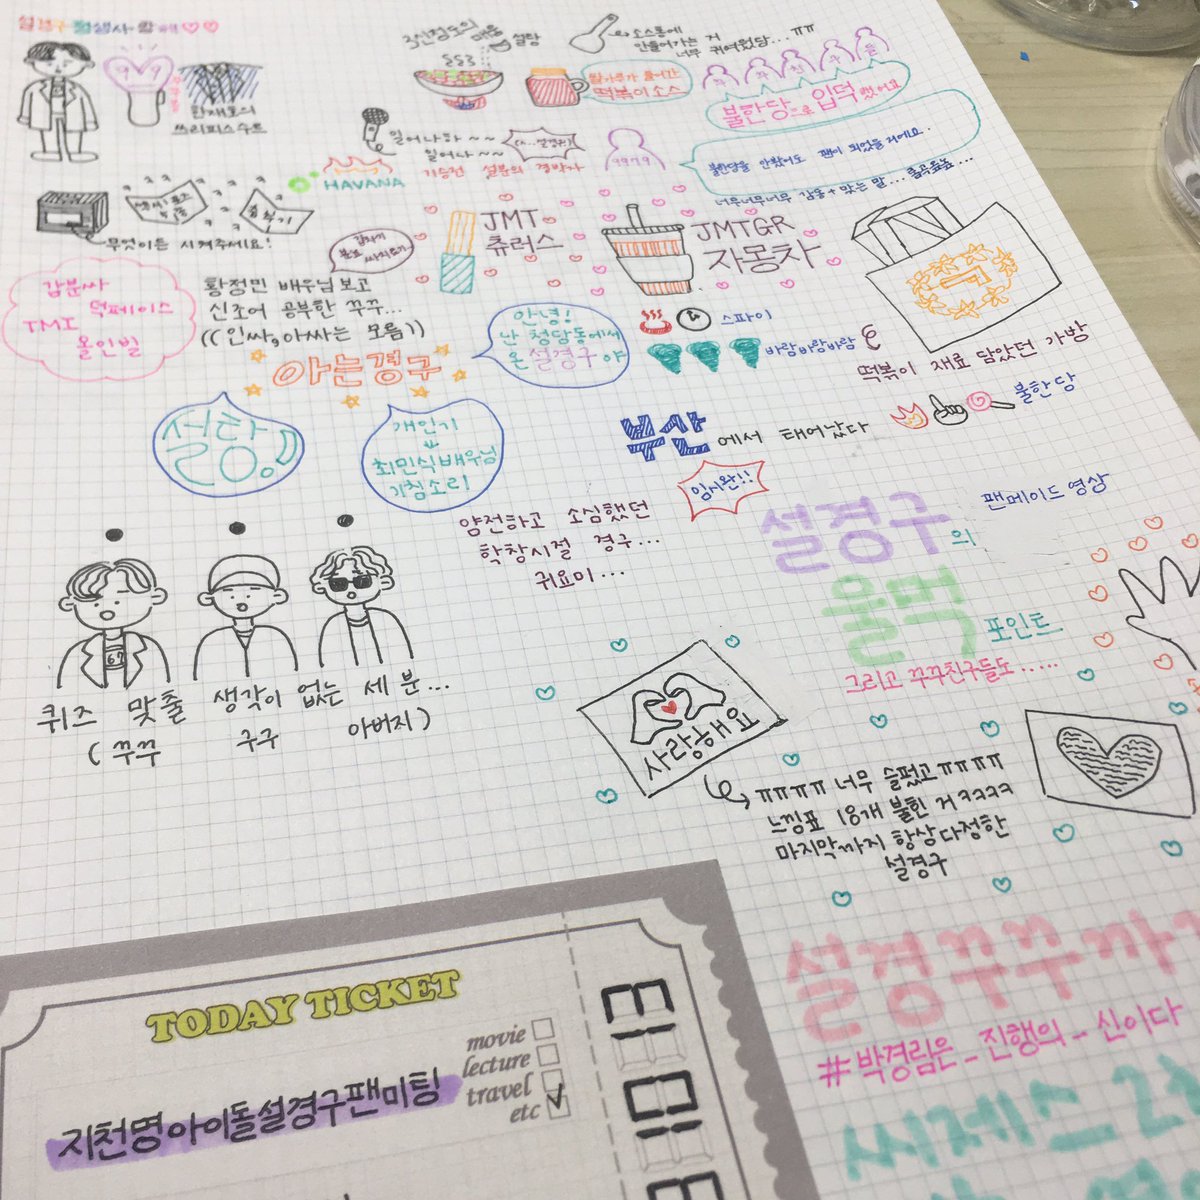 설경구 평생사랑해♡♡
9 9
한재호의
쓰리피스수트
설탕
소스통에
만들어가는 거
너무 귀여웠당...ㅠㅠ
떡볶이소스
불한당으로 입덕했어요
일어나하~~
일어나~~
9979
불한당을 안봤어도 팬이 되었을거예요.
너무너무너무 감동+맞는 말...
HAVANA
무엇이든 시켜주세요!
JMT
츄러스
JMTGR
자몽차
갑분싸
덕페이스
TMI
몰인빌
황정민 배우님보고
신조어 공부한 꾸꾸...
((인싸,아싸는 모름))
안녕!
난 청담동에서
온 설경구야
스파이
바람바람바람
떡볶이 재료 담았던 가방
아는경구
불한당
부산에서 태어났다
설탕♪
개인기
최민식배우님
기침소리
임시완!!
얌전하고 소심했던
학창시절 경구...
귀요미...
설경구의
팬메이드영상
울먹 포인트
그리고 꾸꾸친구들도.....
67
퀴즈 맞출 생각이 없는 세 분...
(꾸꾸 구구 아버지)
사랑해요
ㅠㅠㅠㅠ 너무 슬펐고ㅠㅠㅠㅠ
느낌표 18개 붙힌 거ㅋㅋㅋㅋ
마지막까지 항상다정한
설경구
설경꾸꾸까
#박경림은_진행의_신이다
씨제스_2
TODAY TICKET
movie
lecture
travel
etc
지천명아이돌설경구팬미팅